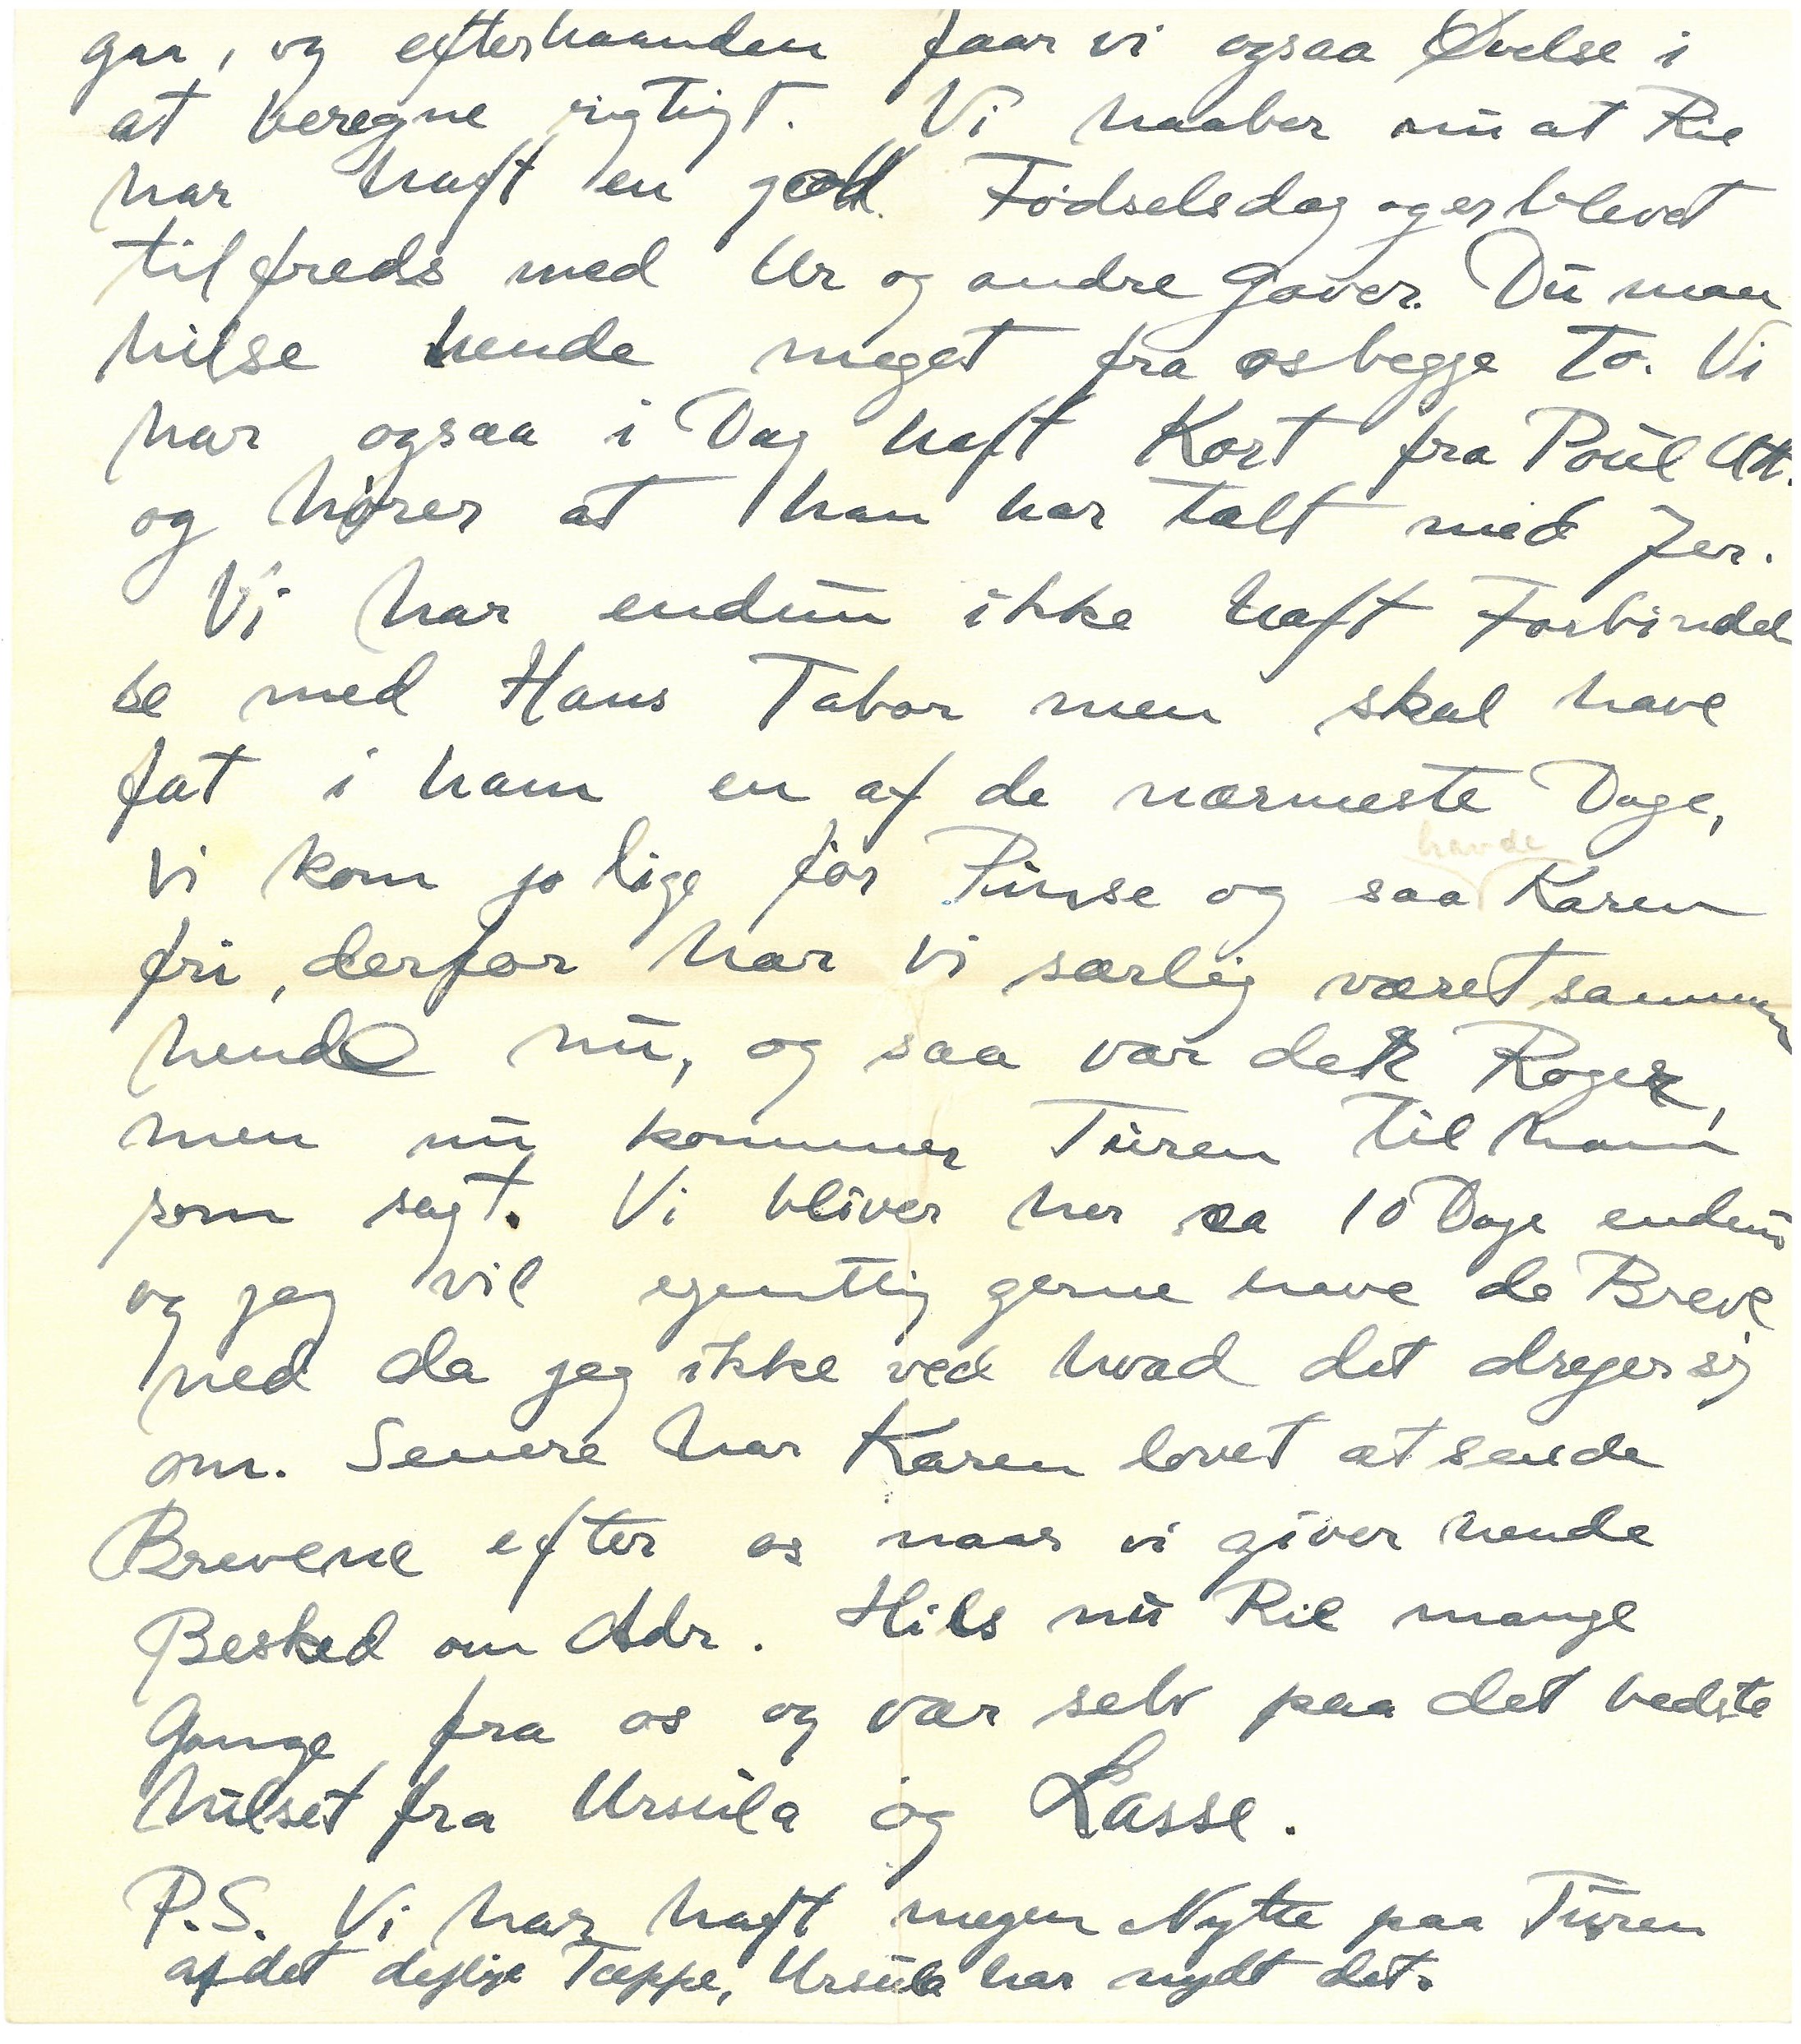 gaa, og efterhaanden faar vi ogsaa Øvelse i
at beregne rigtigt. Vi haaber nu at Rie
har haft en god Fødselsdag og er blevet
tilfreds med Ur og andre Gaver. Du maa
hilse hende meget fra os begge to. Vi
har ogsaa i Dag haft Kort fra Poul Utt.
og hører at han har talt med Jer.
Vi har endnu ikke haft Forbindel
se med Hans Tabor men skal have
fat i ham en af de nærmeste Dage,
havde
vi kom jo lige før Pinse og saa Karen
fri, derfor har vi særlig været sammen
hende nu, og saa var der Roger,
men nu kommer Turen til ham
som sagt. Vi bliver her ca 10 Dage endnu
og jeg vil egentlig gerne have de Breve
ned da jeg ikke ved hvad det drejer sig
om. Senere har Karen lovet at sende
Brevene efter os naar vi giver hende
Besked om Adr. Hils nu Rie mange
Gange fra os og vær selv paa det bedste
hilset fra Ursula og Lasse.
P.S. Vi har haft megen Nytte paa Turen
af det dejlige Tæppe, Ursula har nydt det.